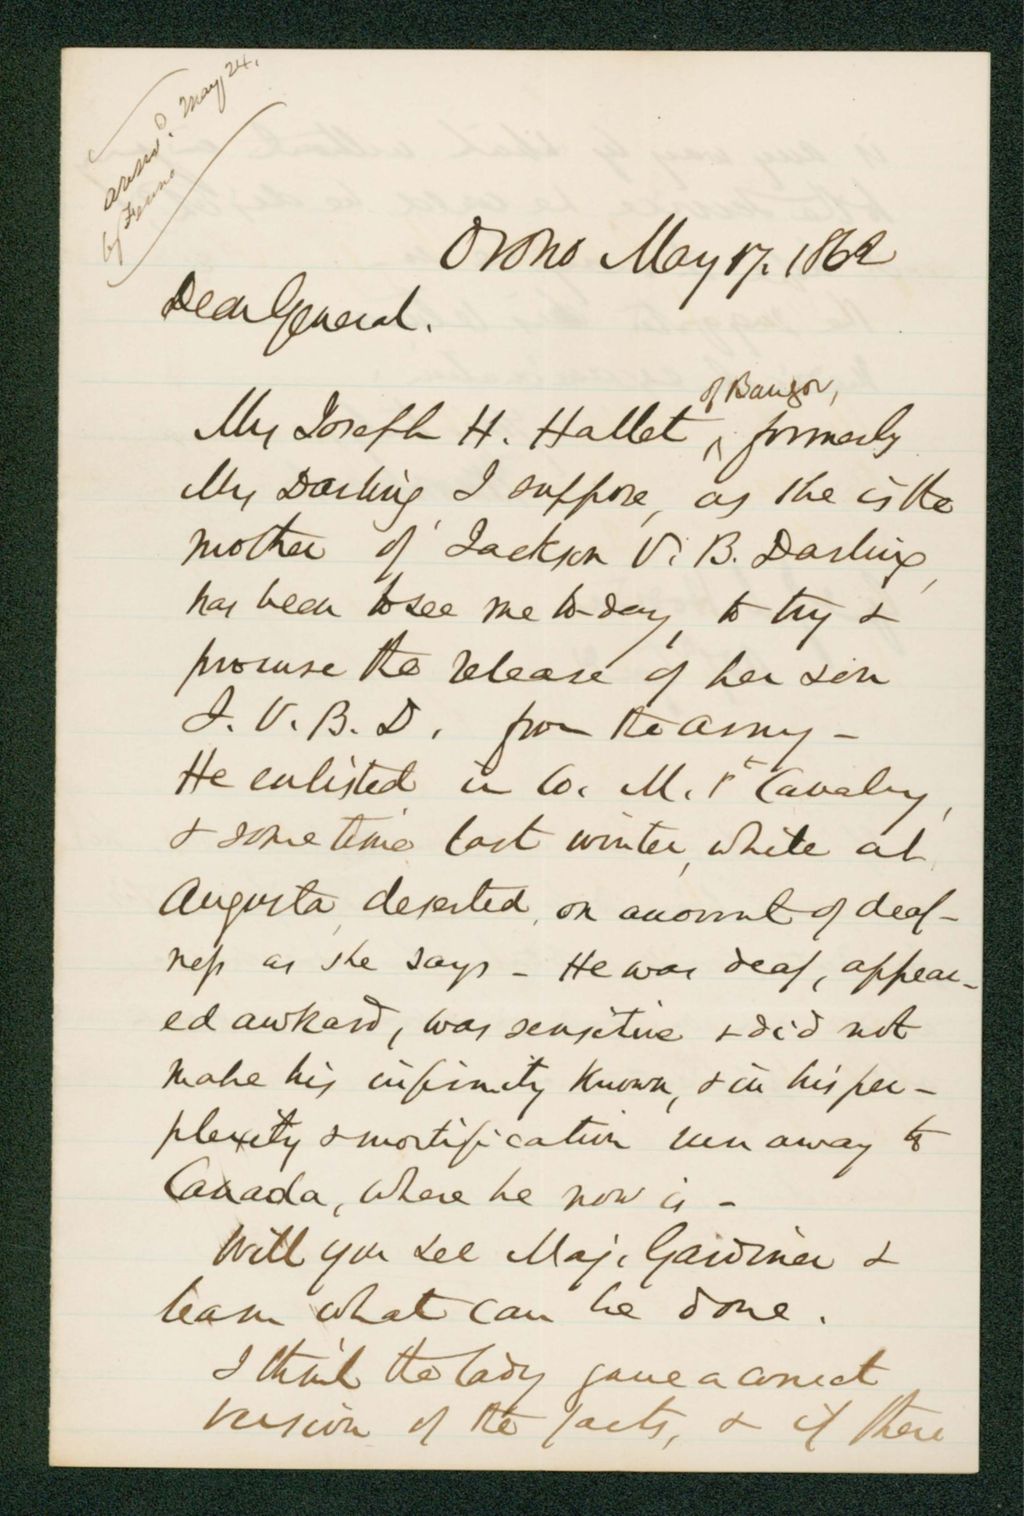 answd. May 24.
by Fenno
Orono May 17, 1862
Dear General.
of Bangor,
Mrs Joseph H. Hallet ^ formerly
Mrs Darling, I suppose, as she is the
mother of Jackson V. B. Darling,
has been to see me to-day, to try &
procure the release of her son
J. V. B. D. from the army –
He enlisted in Co. M. 1st Cavalry,
& some time last winter, while at
Augusta, deserted, on account of deaf-
ness as she says – He was deaf, appear-
ed awkard, was sensitive & did not
make his infirmity known, & in his per-
plexity & mortification run away to
Canada, where he now is –
Will you see Maj. Gardiner &
learn what can be done.
I think the lady gave a correct
version of the facts, & if there